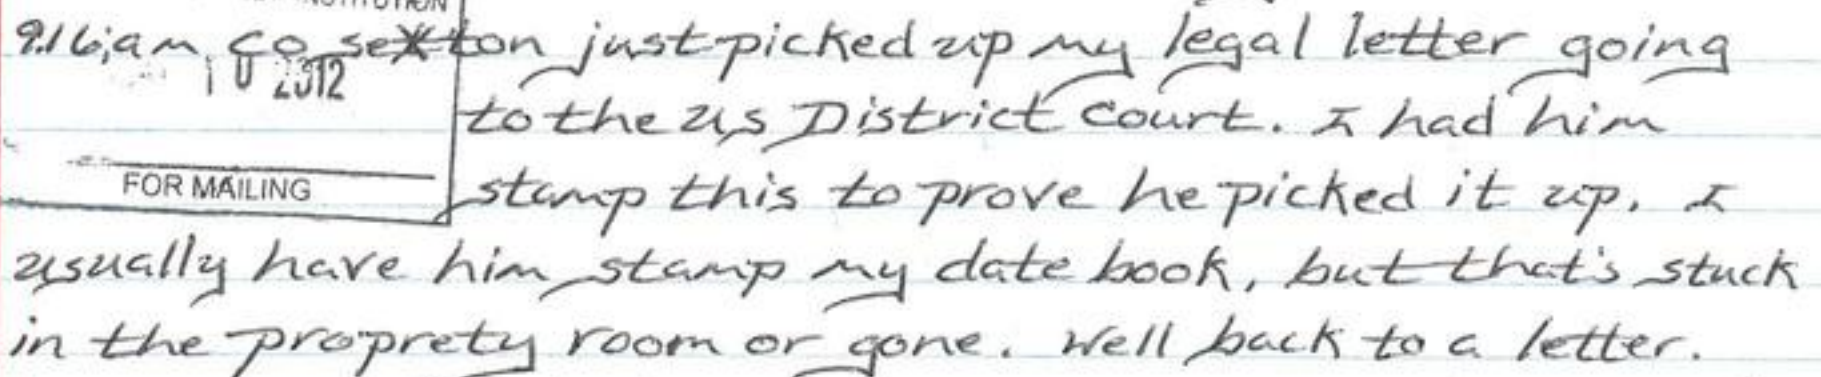 INSTITUTION
9:16;am co sexton just picked up my legal letter going
10 2012
to the us District court. I had him
FOR MAILING
stamp this to prove he picked it up. I
usually have him stamp my date book, but that's stuck
in the proprety room or gone. Well back to a letter.